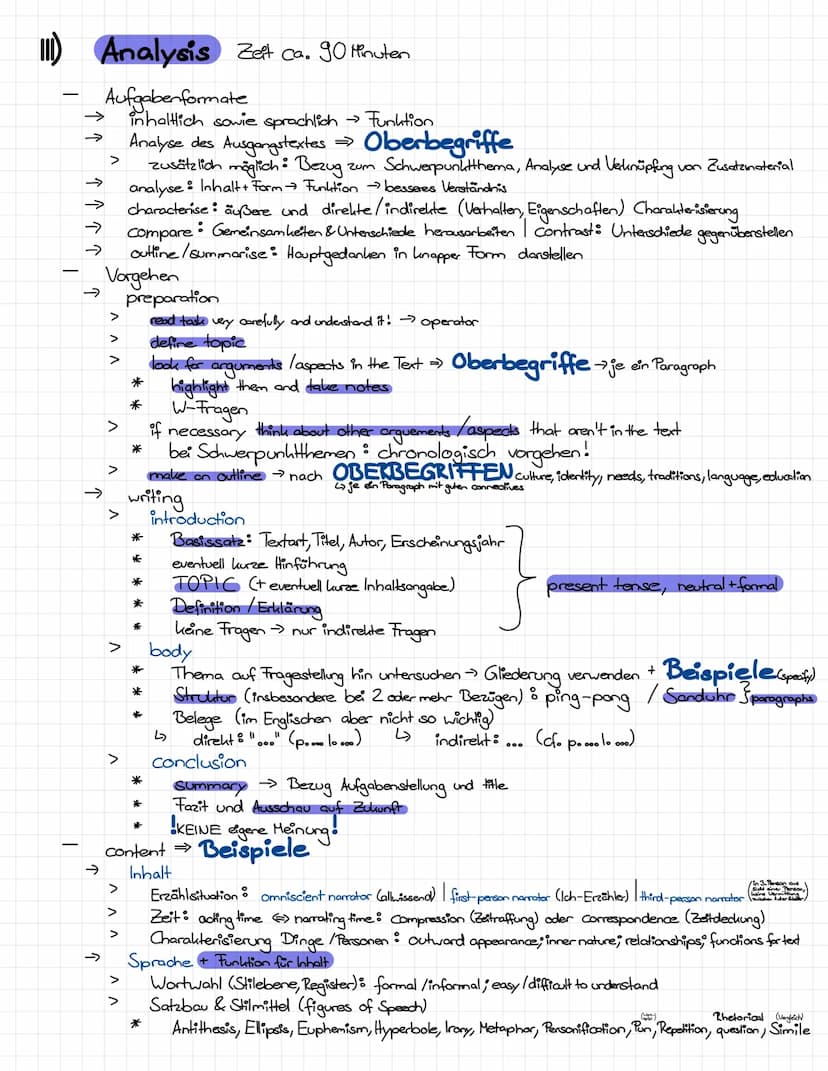 III) Analysis Zeit ca. 90 Minuten
— Aufgabenformate
→ inhaltlich sowie sprachlich → Funktion
→ Analyse des Ausgangstextes ⇒ Oberbegriffe
> zusätzlich möglich: Bezug zum Schwerpunktthema, Analyse und Verknüpfung von Zusatzmaterial
→ analyse: Inhalt + Form → Funktion → besseres Verständnis
→ characterise: äußere und direkte/indirekte (Verhalten, Eigenschaften) Charakterisierung
→ compare: Gemeinsamkeiten & Unterschiede herausarbeiten | contrast: Unterschiede gegenüberstellen
→ outline/summarise: Hauptgedanken in knapper Form darstellen
— Vorgehen
→ preparation
> read task very carefully and understand it! → operator
> define topic
> look for arguments /aspects in the Text ⇒ Oberbegriffe → je ein Paragraph
* highlight them and take notes
* W-Fragen
> if necessary think about other arguements /aspects that aren't in the text
* bei Schwerpunktthemen: chronologisch vorgehen!
> make an outline → nach OBERBEGRIFFEN culture, identity, needs, traditions, language, education
↳ je ein Paragraph mit guten connectives
→ writing
> introduction
* Basissatz: Textart, Titel, Autor, Erscheinungsjahr
* eventuell kurze Hinführung
* TOPIC (+ eventuell kurze Inhaltsangabe)
present tense, neutral + formal
* Definition / Erklärung
* keine Fragen → nur indirekte Fragen
> body
* Thema auf Fragestellung hin untersuchen → Gliederung verwenden + Beispiele (specify)
* Struktur (insbesondere bei 2 oder mehr Bezügen): ping-pong / Sanduhr } paragraphs
* Belege (im Englischen aber nicht so wichtig)
↳ direkt: "..." (p.... l. ...) ↳ indirekt: ... (cf. p.... l. ...)
> conclusion
* summary → Bezug Aufgabenstellung und title
* Fazit und Ausschau auf Zukunft
* !KEINE eigene Meinung!
— content ⇒ Beispiele
→ Inhalt
> Erzählsituation: omniscient narrator (allwissend) | first-person narrator (Ich-Erzähler) | third-person narrator (in 3. Person aus Sicht einer Person,
> Zeit: acting time ⇔ narrating time: compression (Zeitraffung) oder correspondence (Zeitdeckung)
> Charakterisierung Dinge / Personen: outward appearance; inner nature; relationships; functions for text
→ Sprache + Funktion für Inhalt
> Wortwahl (Stilebene, Register): formal /informal; easy /difficult to understand
> Satzbau & Stilmittel (figures of Speech)
* Antithesis, Ellipsis, Euphemism, Hyperbole, Irony, Metaphor, Personification, Pun, Repetition, Rhetorical question, (Vergleich) Simile